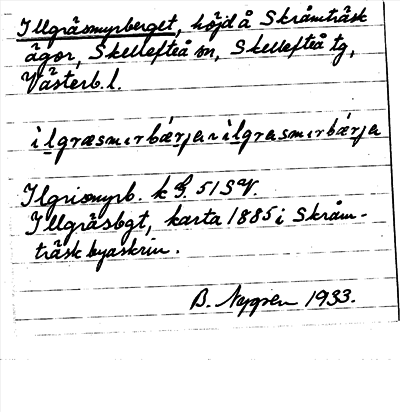 Illgräsmyrberget, höjd å Skråmträsk
ägor, Skellefteå sn, Skellefteå tg,
Västerb. l.
ìlgræsmɩrbǽrja ~ ìlgrasmɩrbǽrja
Ilgrismyrb. k G. 51 SV.
Illgräsbgt, karta 1885 i Skråm-
träsk byaskrin.
B. Nygren 1933.